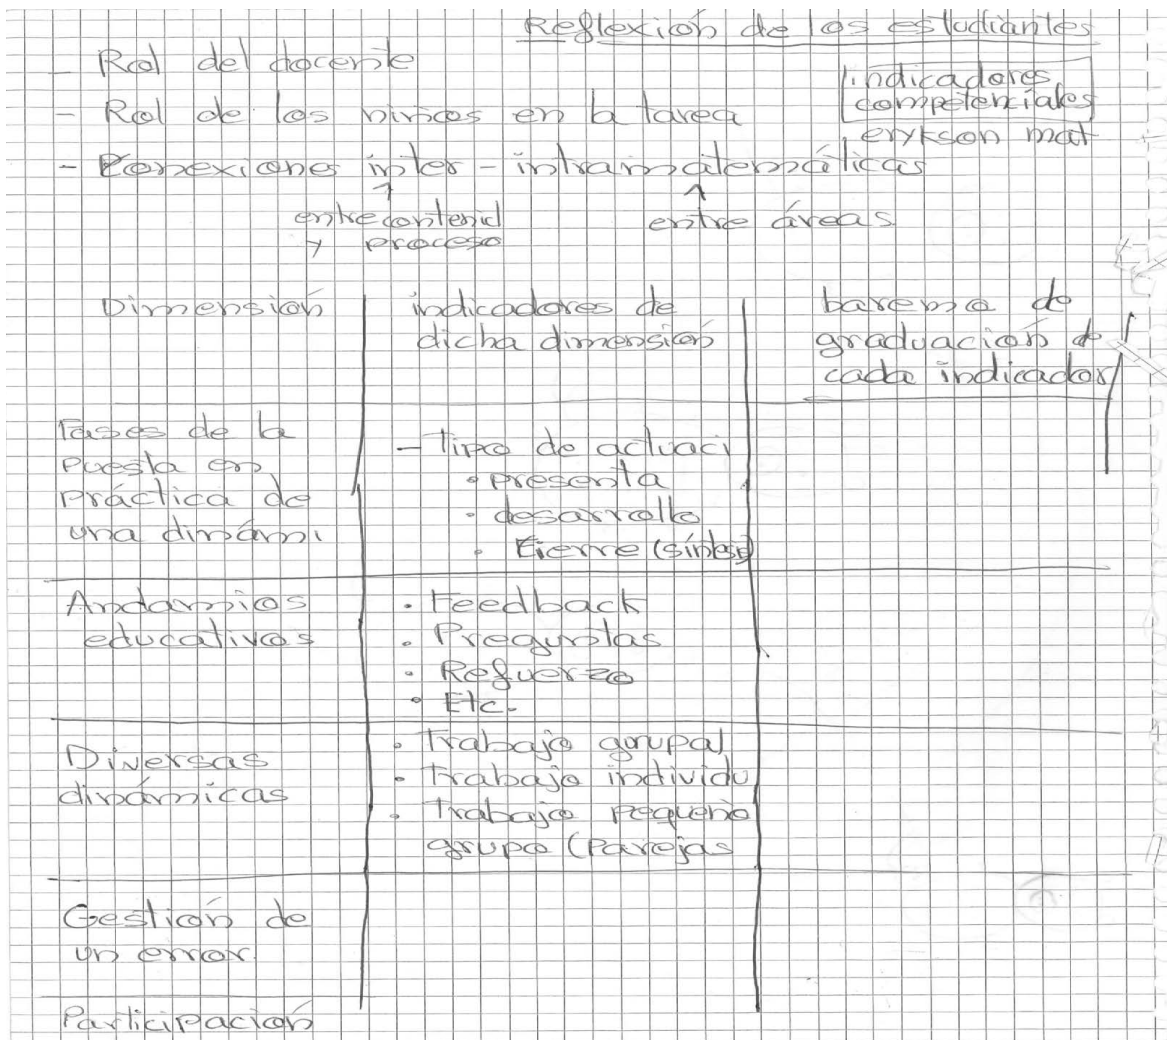 Reflexión de los estudiantes
- Rol del docente
- Rol de los niños en la tarea
indicadores
competenciales
erykson mat
- Conexiones inter-intramatemáticas
entre contenid
y proceso
entre áreas
Dimensión
indicadores de
dicha dimensión
baremo de
graduación d
cada indicador
Fases de la
Puesta en
práctica de
una dinámi
- Tipo de actuaci
• presenta
• desarrollo
• Cierre (síntesi)
Andamios
educativos
• Feedback
• Preguntas
• Refuerzo
• Etc.
Diversas
dinámicas
• Trabajo gurupal
• Trabajo individu
• Trabajo pequeño
grupo (Parejas
Gestión de
un error
Participación